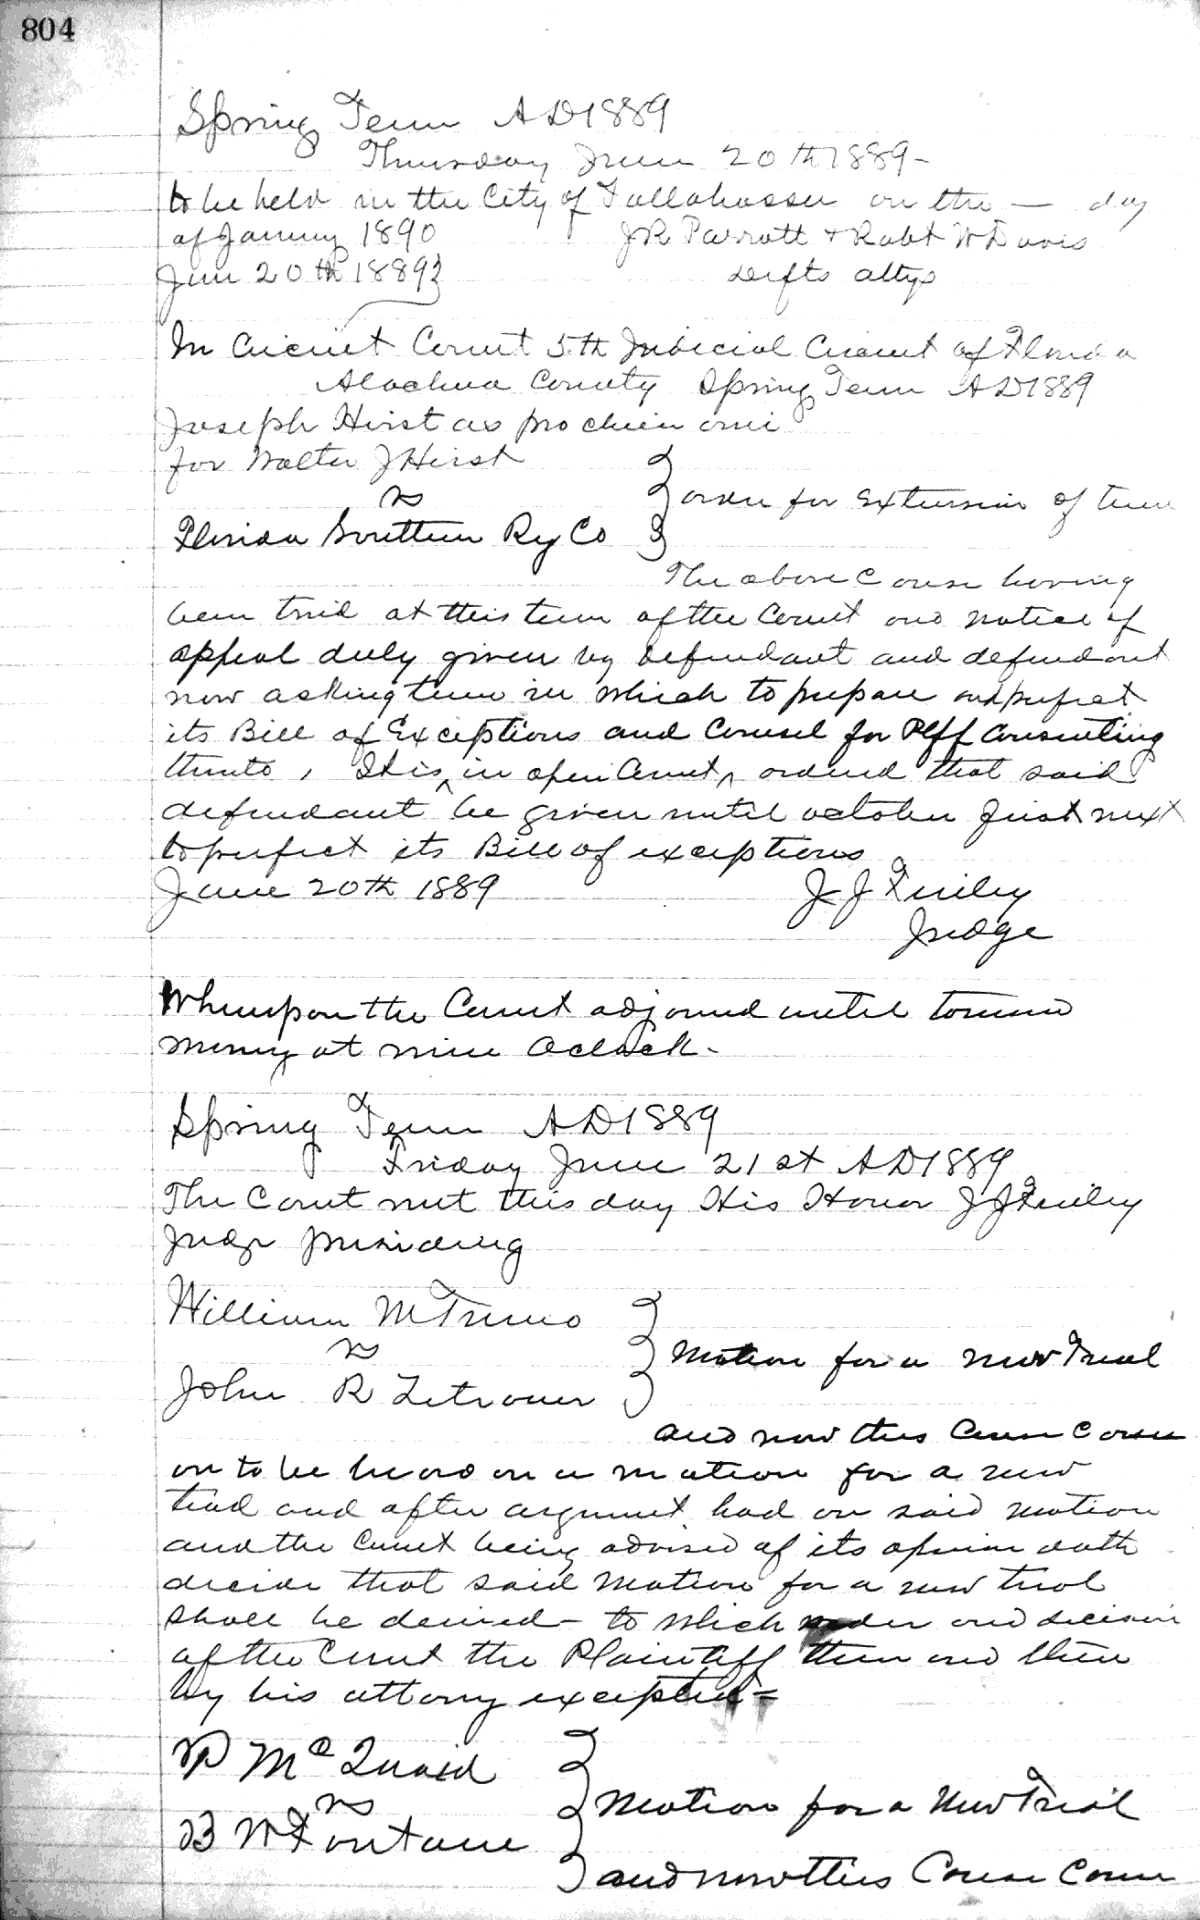 804
Spring Term AD 1889
Thursday June 20th 1889-
to be held in the City of Tallahassee on the — day
of January 1890 J R Parrott + Robt W Davis
June 20th 1889} Defts attys
In Circuit Court 5th Judicial Circuit of Florida
Alachua County Spring Term AD 1889
Joseph Hirst as prochein ami
for Walter J Hirst
vs } order for Extension of time
Florida Southern Ry Co
The above Cause having
been tried at this term of the Court and notice of
appeal duly given by defendant and defendant
now asking time in which to prepare and perfect
its Bill of Exceptions and Counsel for Plff Consenting
thereto, It is ^ in open Court ^ ordered that said
defendant be given until october first next
to perfect its Bill of exceptions
June 20th 1889 J J Finley
Judge
Whereupon the Court adjourned until tomorrow
morning at nine Oclock-
Spring Term AD 1889
Friday June 21st AD 1889
The Court met this day His Honor J J Finley
Judge presiding
William M
vs } Motion for a new Trial
John R Zetrouer
and now this Cause Comes
on to be heard on a motion for a new
trial and after argument had on said motion
and the Court being advised of its opinion doth
decide that said Motion for a new trial
shall be denied- to which order and decision
of the Court the Plaintiff then and there
by his attorney excepted =
P McQuaid
vs } Motion for a New Trial
B W Fontane
and now this Cause Came